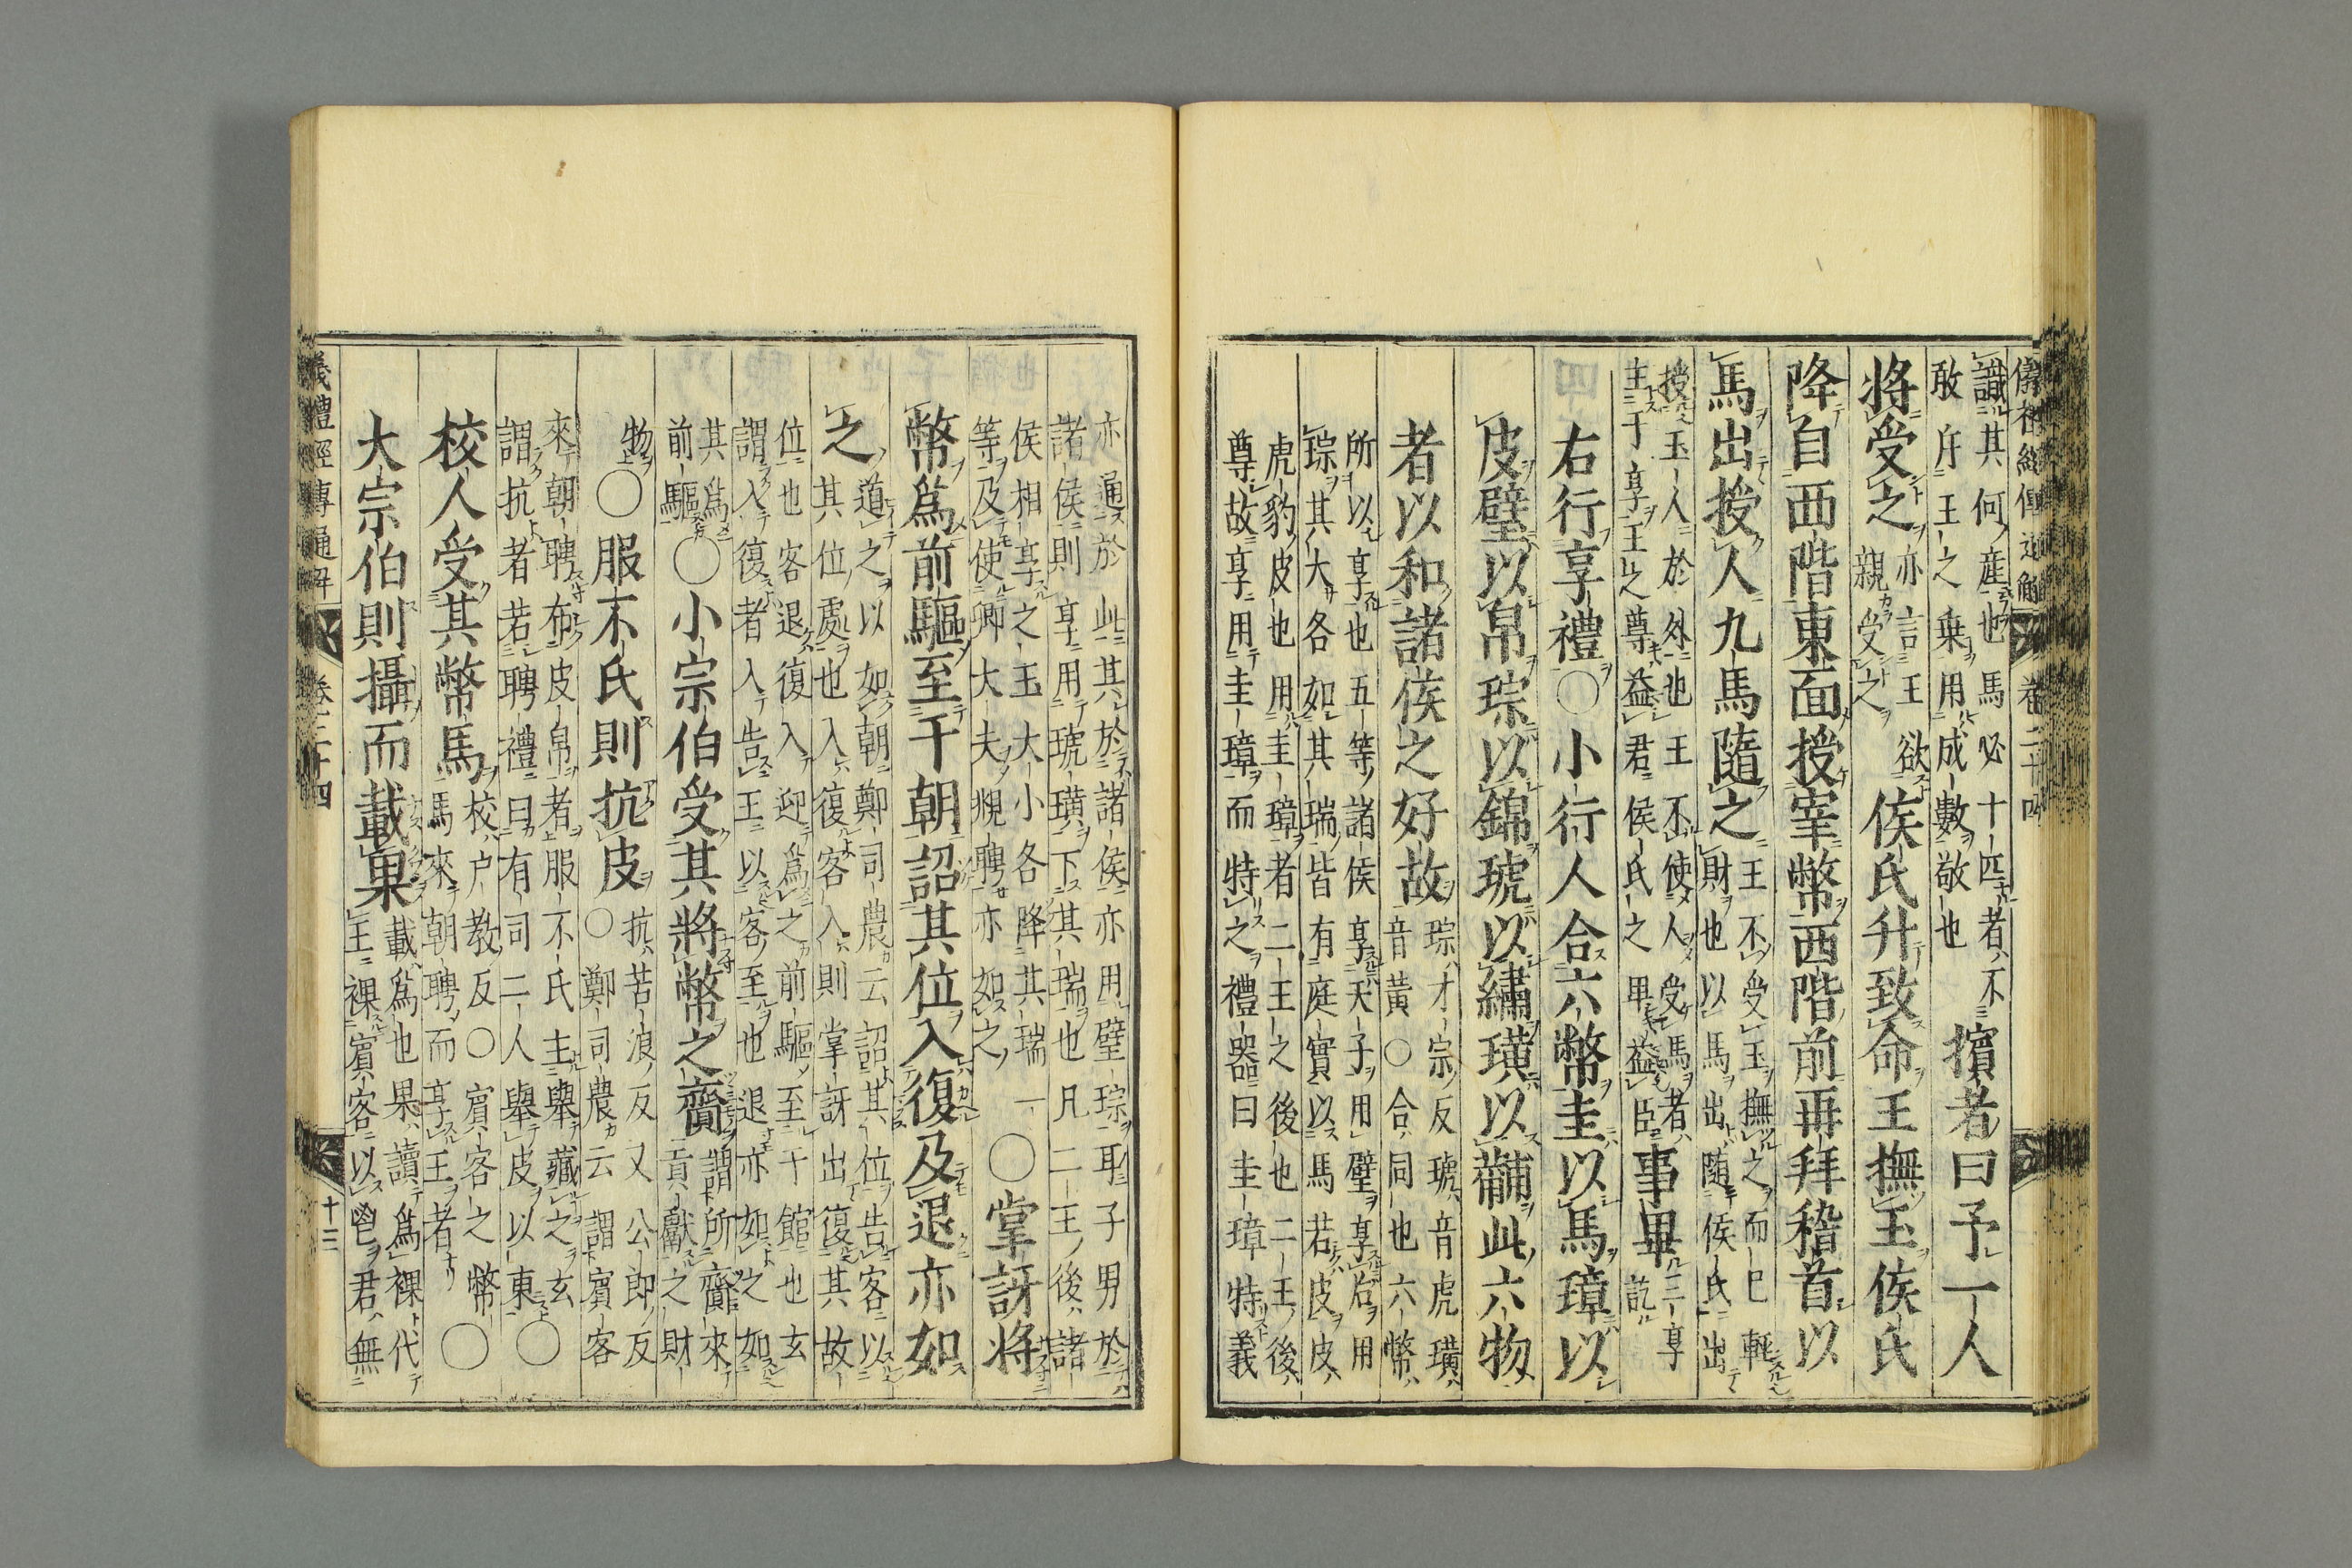 儀禮經傳通解 卷二十四
識其何産也馬必十匹者不
敢斥王之乗用成數敬也
擯者曰予一人
將受之
亦言王欲
親受之
侯氏升致命王撫玉侯氏
降自西階東面授宰幣西階前再拜稽首以
馬出授人九馬隨之
王不受玉撫之而已輕
財也以馬出随侯氏出
授玉人於外也王不使人受馬者
主于享王之尊益君侯氏之卑益臣
事畢
三享
訖
右行享禮〇小行人合六幣圭以馬璋以
皮璧以帛琮以錦琥以繡璜以黼此六物
者以和諸侯之好故
琮才宗反琥音虎璜
音黃〇合同也六幣
所以享也五等諸侯享天子用璧享后用
琮其大各如其瑞皆有庭實以馬若皮皮
虎豹皮也用圭璋者二王之後也二王後
尊故享用圭璋而特之禮器曰圭璋特義
亦通於此其於諸侯亦用璧琮耳子男於
諸侯則享用琥璜下其瑞也凡二王後諸
侯相享之玉大小各降其瑞一
等及使卿大夫覜聘亦如之
〇掌訝將
幣爲前驅至于朝詔其位入復及退亦如
之
道之以如朝鄭司農云詔其位告客以
其位處也入復客入則掌訝出復其故
位也客退復入迎爲之前驅至于館也玄
謂入復者入告王以客至也退亦如之如
其爲
前驅
〇小宗伯受其將幣之齎
謂所齎來
貢獻之財
物
〇服不氏則抗皮
抗苦浪反又公郎反
〇鄭司農云謂賓客
來朝聘布皮帛者服不氏主舉藏之玄
謂抗者若聘禮曰有司二人舉皮以東
〇
校人受其幣馬
校户教反〇賓客之幣
馬來朝聘而享王者
〇
大宗伯則攝而載果
載爲也果讀爲祼代
王祼賓客以鬯君無
儀禮經傳通解 卷二十四 十三